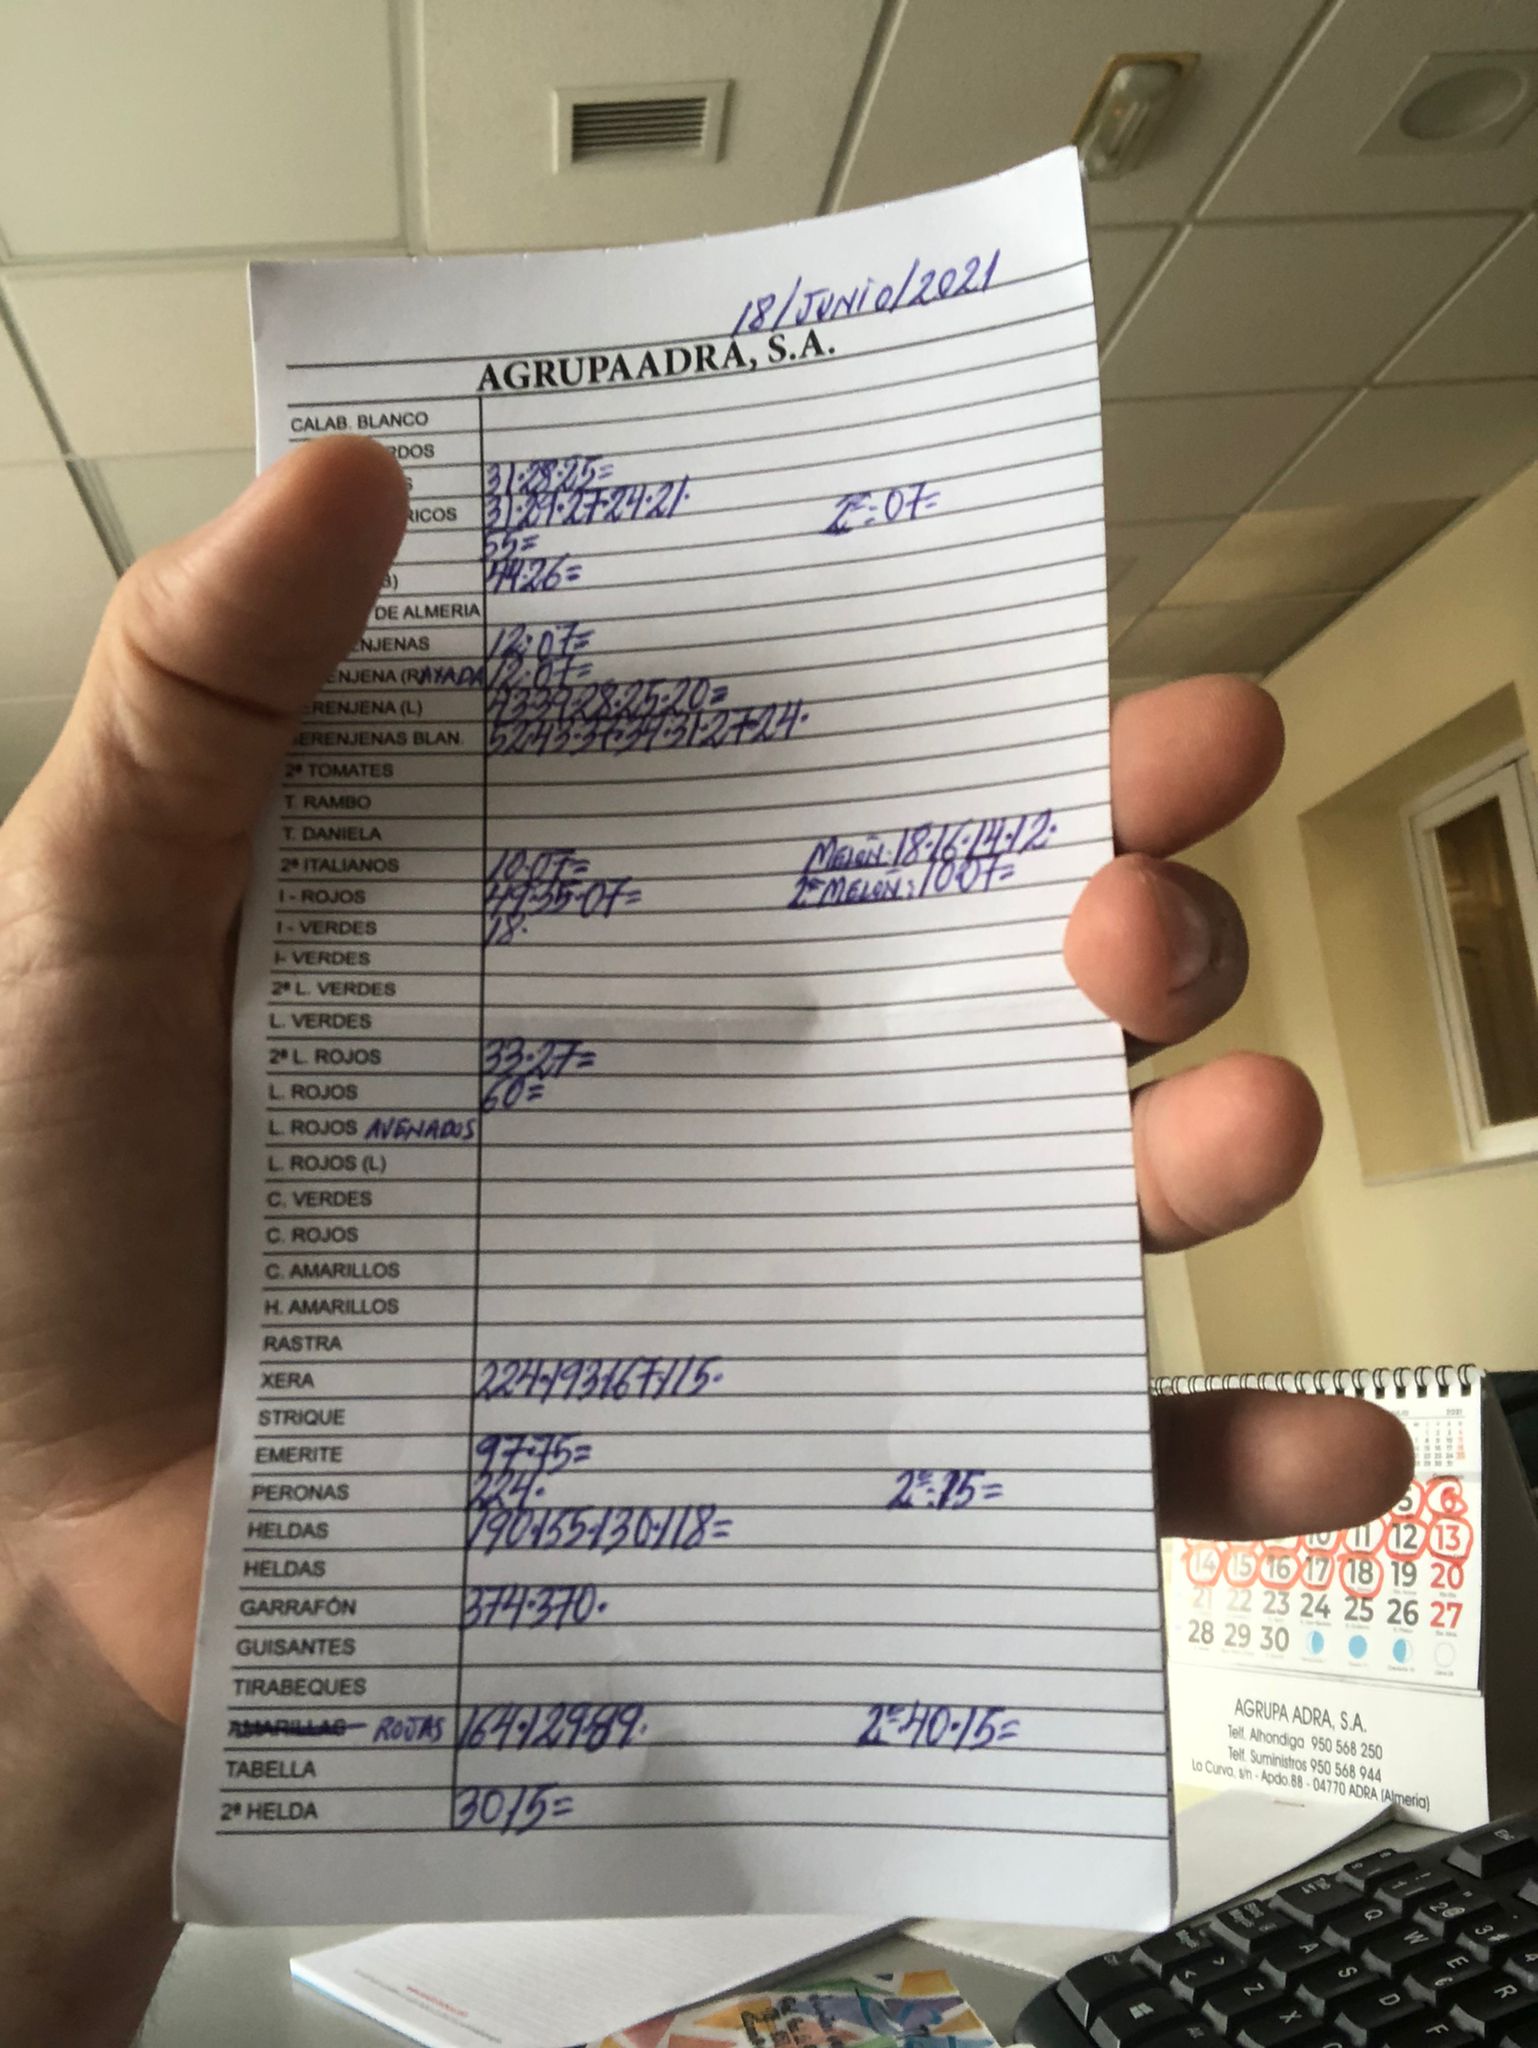 18/JUNIO/2021
AGRUPAADRA, S.A.
CALAB. BLANCO
RDOS
S 31·28·25=
RICOS 31·29·27·24·21· 2ª:07=
55=
B) 44·26=
DE ALMERIA
ENJENAS 12:07=
ENJENA (RAYADA 12:07=
ERENJENA (L) 43·34·28·25·20=
BERENJENAS BLAN. 52·43·37·34·31·27·24·
2ª TOMATES
T. RAMBO
T. DANIELA MELOÑ:18·16·14·12·
2ª ITALIANOS 10·07= 2ªMELOÑ:10·07=
I - ROJOS 49·35·07=
I - VERDES 18·
I- VERDES
2ª L. VERDES
L. VERDES
2ª L. ROJOS 33·27=
L. ROJOS 60=
L. ROJOS AVENADOS
L. ROJOS (L)
C. VERDES
C. ROJOS
C. AMARILLOS
H. AMARILLOS
RASTRA
XERA 224·193·167·115·
STRIQUE
EMERITE 97·75=
PERONAS 224· 2ª:15=
HELDAS 190·155·130·118=
HELDAS
GARRAFÓN 374·370·
GUISANTES
TIRABEQUES
AMARILLAS ROJAS 164·129·89· 2ª40·15=
TABELLA
2ª HELDA 30·15=
2021
5 6
10 11 12 13
14 15 16 17 18 19 20
21 22 23 24 25 26 27
28 29 30
AGRUPA ADRA, S.A.
Telf. Alhondiga 950 568 250
Telf. Suministros 950 568 944
La Curva, s/n - Apdo.88 - 04770 ADRA (Almeria)